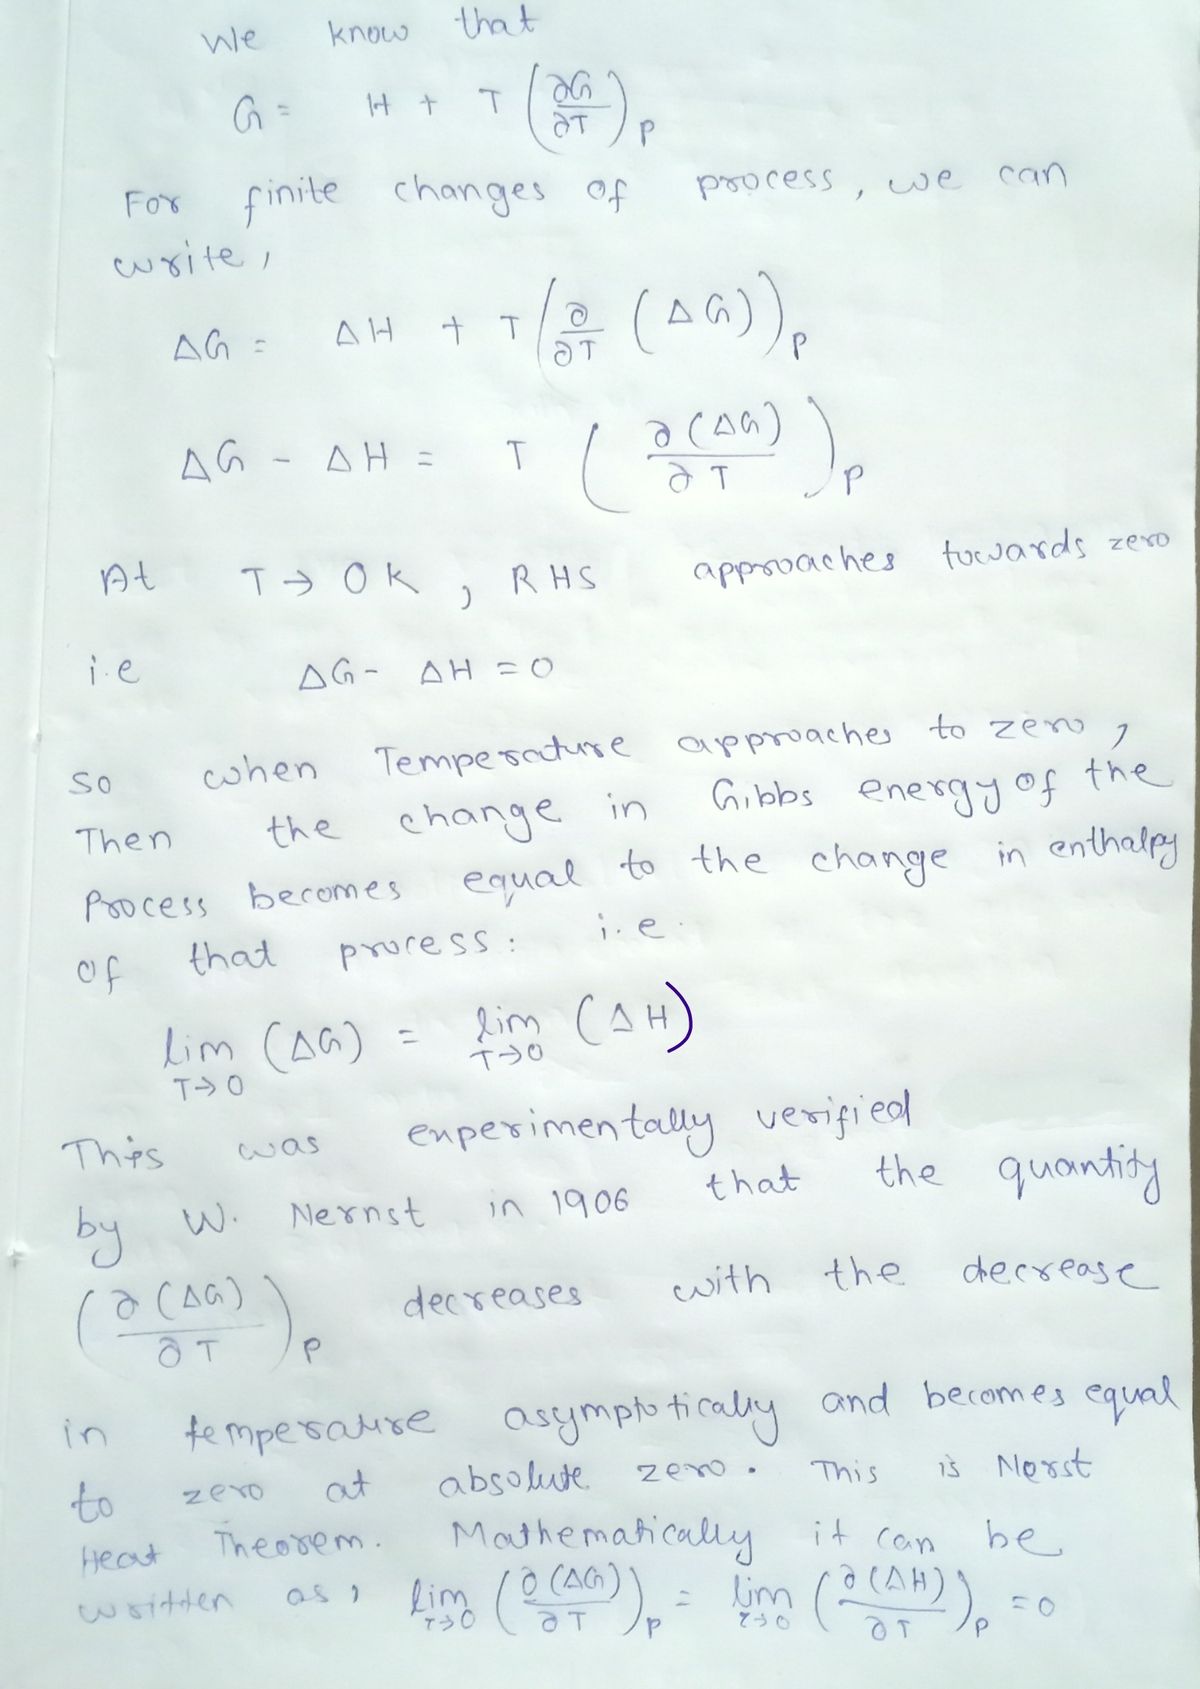 We know that
G = H + T (∂G/∂T)_P
For finite changes of process, we can
write,
ΔG = ΔH + T (∂/∂T (ΔG))_P
ΔG - ΔH = T (∂(ΔG)/∂T)_P
At T → 0K, RHS approaches towards zero
i.e ΔG - ΔH = 0
so when Temperature approaches to zero,
Then the change in Gibbs energy of the
Process becomes equal to the change in enthalpy
of that process: i.e.
lim T→0 (ΔG) = lim T→0 (ΔH)
This was experimentally verified
by W. Nernst in 1906 that the quantity
(∂(ΔG)/∂T)_P decreases with the decrease
in temperature asymptotically and becomes equal
to zero at absolute zero. This is Nerst
Heat Theorem. Mathematically it can be
written as, lim T→0 (∂(ΔG)/∂T)_P = lim T→0 (∂(ΔH)/∂T)_P = 0